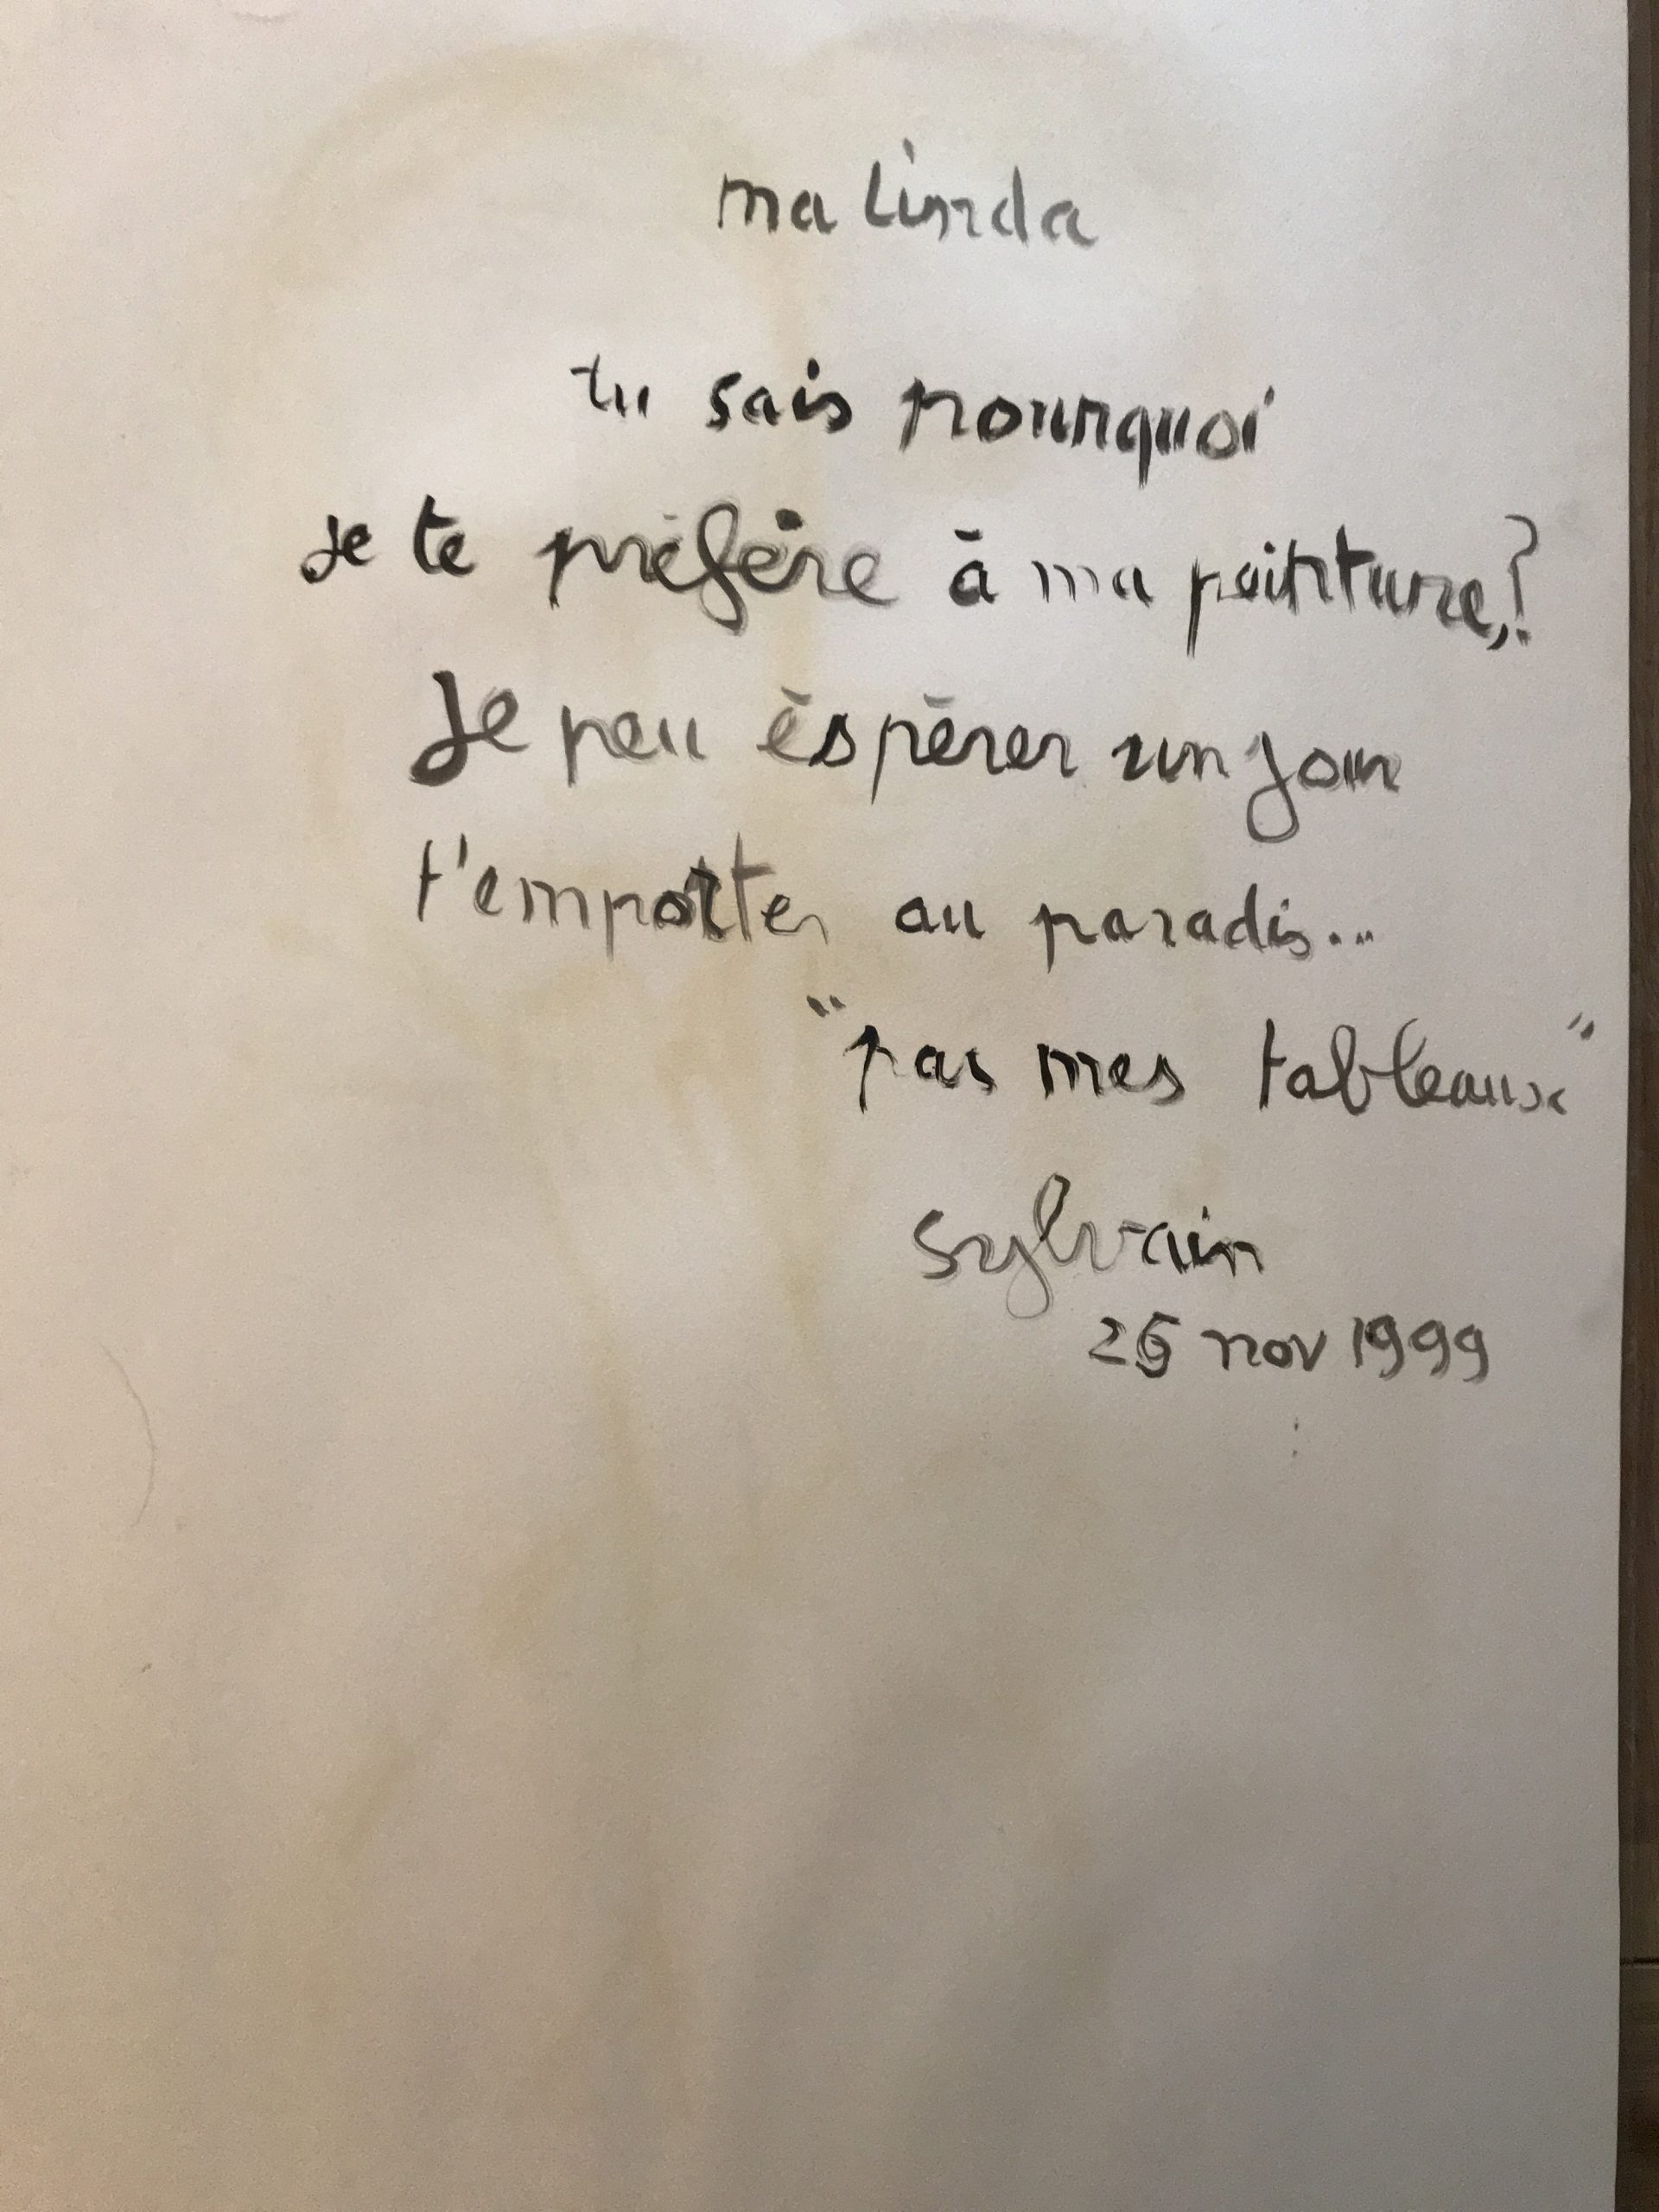 ma Linda
tu sais pourquoi
Je te préfère à ma peinture,?
Je peu éspérer un jour
t'emporter au paradis...
"pas mes tableaux"
Sylvain
nov 1999